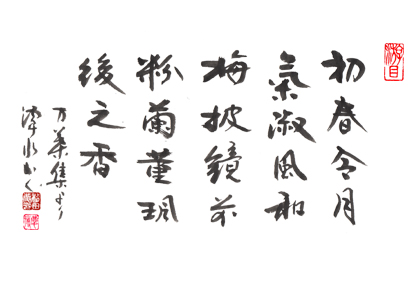 初春令月
氣淑風和
梅披鏡前
粉蘭薫珮
後之香
万葉集より
游目